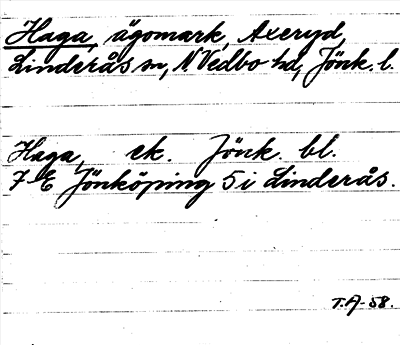 Haga, ägomark, Axeryd,
Linderås sn, N Vedbo hd, Jönk. l.
Haga, ek. Jönk. bl.
7 E Jönköping 5 i Linderås.
T.A-58.